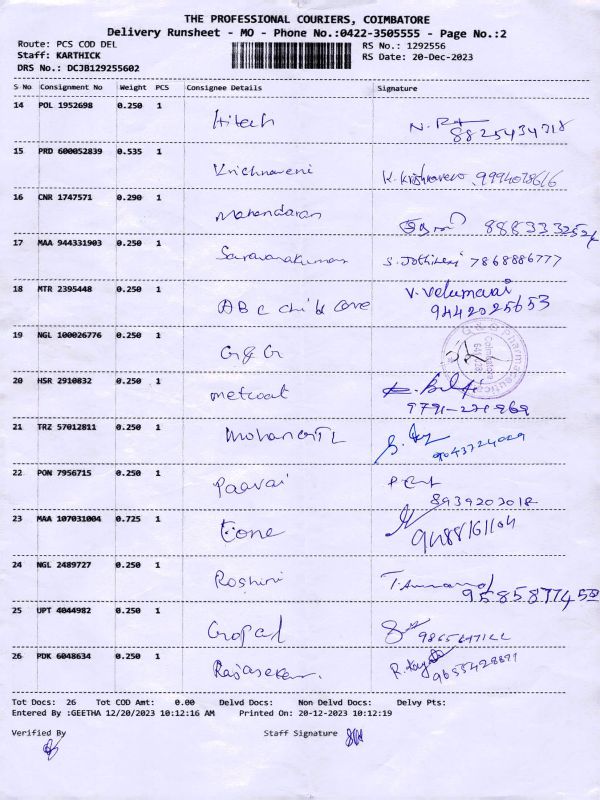 THE PROFESSIONAL COURIERS, COIMBATORE
Delivery Runsheet - MO - Phone No.:0422-3505555 - Page No.:2
Route: PCS COD DEL
RS No.: 1292556
Staff: KARTHICK
RS Date: 20-Dec-2023
DRS No.: DCJB129255602
S No Consignment No Weight PCS Consignee Details Signature
14 POL 1952698 0.250 1 Hitech
8825434718
15 PRD 600052839 0.535 1 Krichnaveni
16 CNR 1747571 0.290 1 Mahendaran
17 MAA 944331903 0.250 1 Saravanakumar 7868886777
18 MTR 2395448 0.250 1 ABC child care V. Velumavai
9442025653
19 NGL 100026776 0.250 1 G&G
20 HSR 2910832 0.250 1 metcoat
21 TRZ 57012811 0.250 1
22 PON 7956715 0.250 1 Paavai
8939203018
23 MAA 107031004 0.725 1 Eone
9488161104
24 NGL 2489727 0.250 1 Roshini
9585877450
25 UPT 4044982 0.250 1 Gopal
26 PDK 6048634 0.250 1 Rajasekar.
9655428671
Tot Docs: 26 Tot COD Amt: 0.00 Delvd Docs: Non Delvd Docs: Delvy Pts:
Entered By :GEETHA 12/20/2023 10:12:16 AM Printed On: 20-12-2023 10:12:19
Verified By Staff Signature